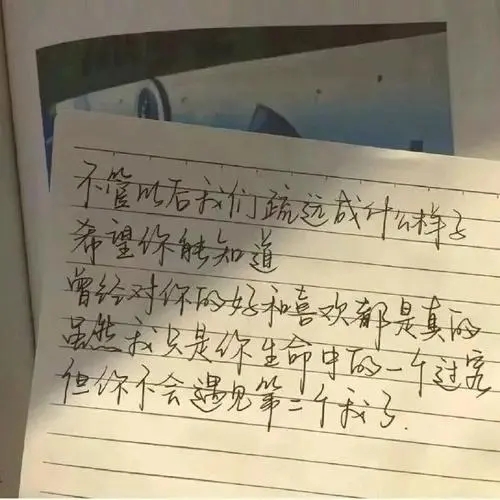 不管以后我们疏远成什么样子
希望你能知道
曾经对你的好和喜欢都是真的
虽然我只是你生命中的一个过客
但你不会遇见第二个我了.